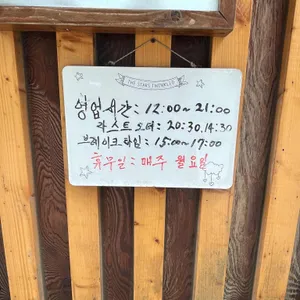 THE STARS TWINKLED
영업시간 : 12:00~21:00
라스트오더 : 20:30, 14:30
브레이크타임 : 15:00~17:00
휴무일 : 매주 월요일